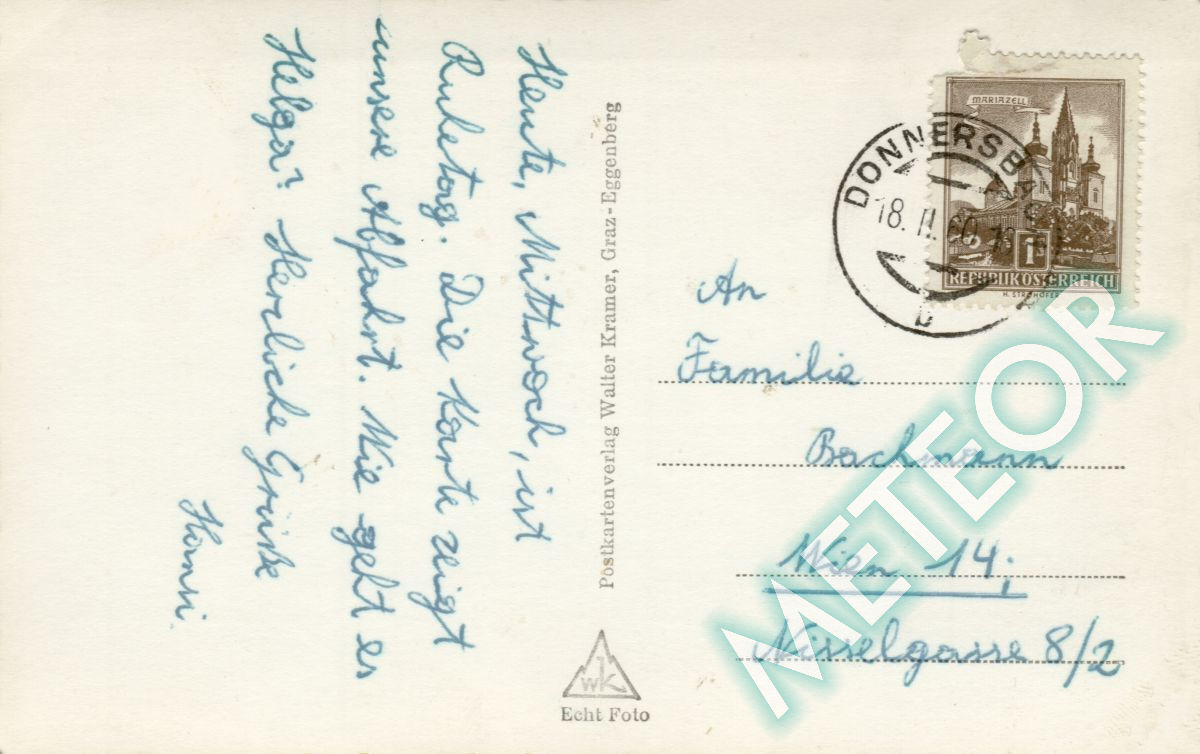 Heute, Mittwoch, ist
Ruhetag. Die Karte zeigt
unsere Abfahrt. Wie geht es
Helga? Herrliche Grüße
Hansi.
Postkartenverlag Walter Kramer, Graz-Eggenberg
WK
Echt Foto
MARIAZELL
1S
REPUBLIK ÖSTERREICH
H. STROHOFER
DONNERSBACH
18. II. 60
b
An
Familie
Bachmann
Wien 14,
Nisselgasse 8/2
METEOR